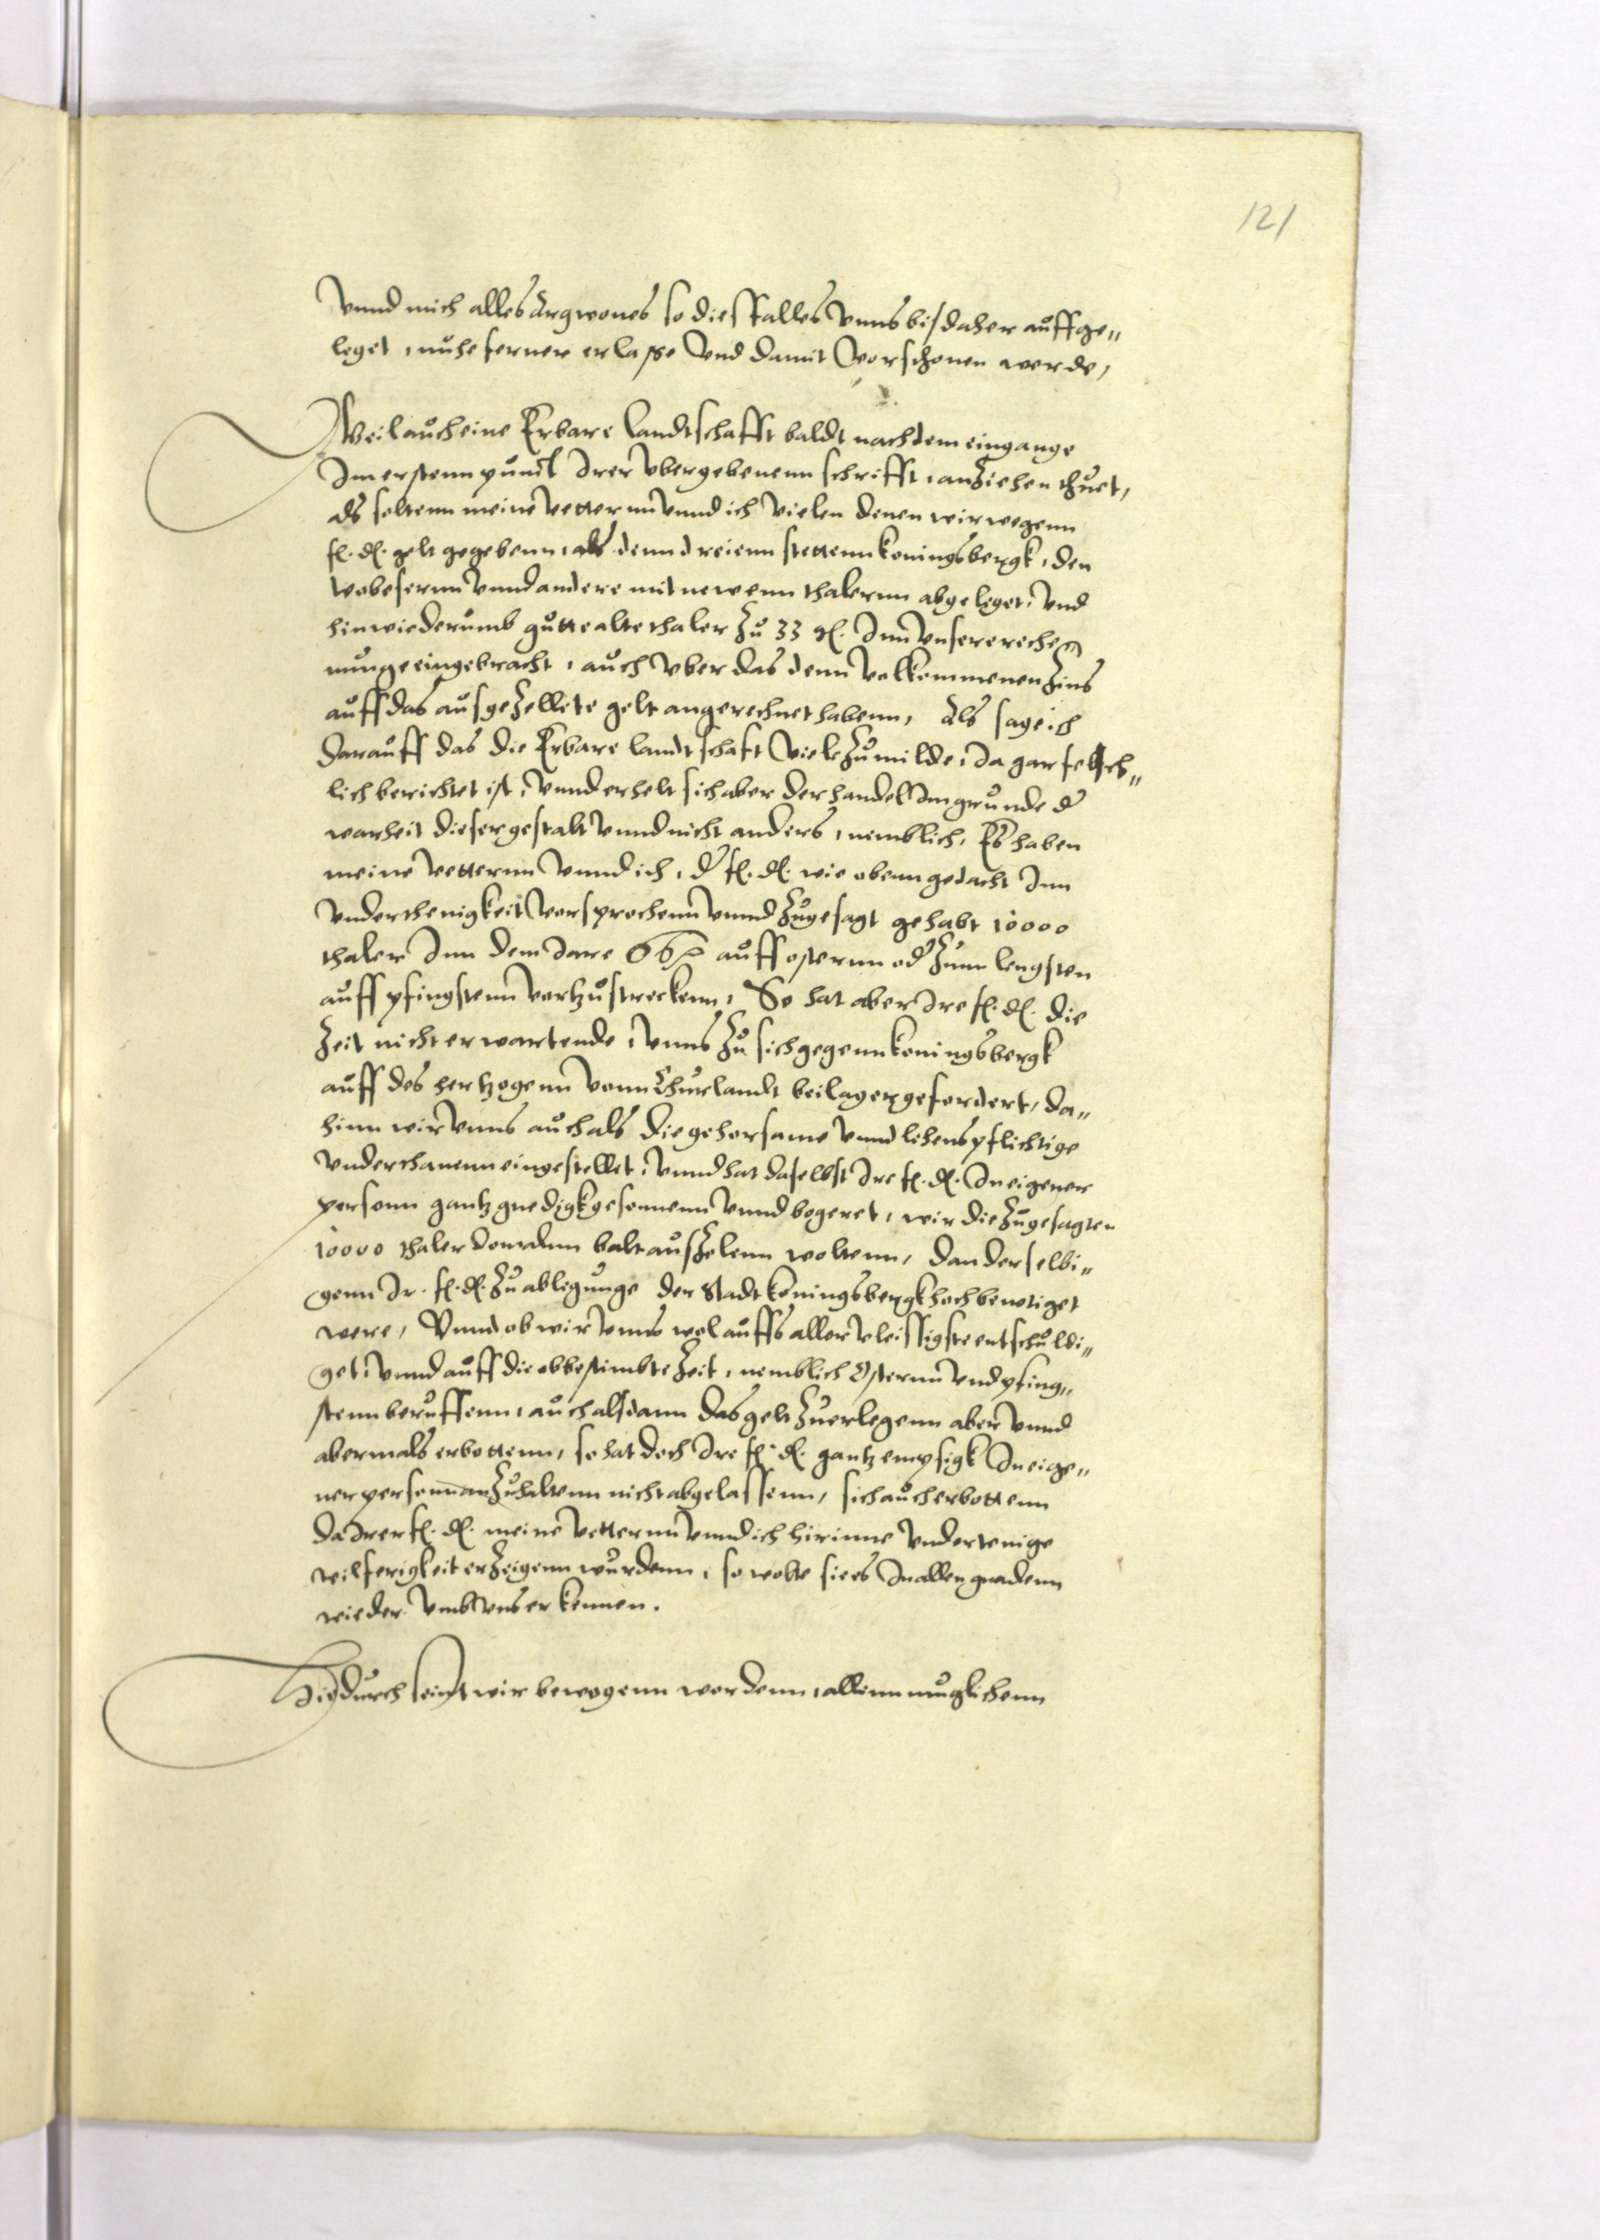 121
Vnnd mich alles Argwones so diesfalles Vnns bis daher auffge„
leget, nuhe ferner erlasse Vnd damit Vorschonen werde,
Weil auch eine Erbare Landtschafft baldt nach dem eingange
Im ersten punct Irer vbergebenenn schrifft, anziehen thuet,
als soltenn meine vetternn vnnd ich vielen denen wir wegenn
f. d. gelt gegebenn, als denn dreienn stettenn koningsbergk, den
vnnd andere mit newenn thalernn abgeleget, vnd
hinwiederumb gutte alte thaler zu 33 gl. Inn vnsere rechen
nunge eingebracht, auch vber das denn volkommenen zins
auff das ausgezellete gelt angerechnet habenn, Als sage ich
darauff das die Erbare landtschaft viele zu milde, Ja gar felsch„
lich berichtet ist, vnnd erhelt sich aber der handel Im grunde der
warheit dieser gestalt vnnd nicht anders, nemblich, Es haben
meine vetternn vnnd ich, der f. d. wie obenn gedacht Inn
vnderthenigkeit vorsprochenn vnnd zugesagt gehabt 10000
thaler Inn dem Jare 66 auff osternn oder zum lengsten
auff pfingstenn vorzustreckenn, So hat aber Ire f. d. die
zeit nicht erwartende, vnns zu sich gegenn koningsbergk
auff des hertzogenn vonn Churlandt beilager gefordert, da„
hinn wir vnns auch als die gehorsame vnnd lehenspflichtige
vnderthanenn eingestellet, vnnd hat daselbst Ire f. d. In eigener
personn gantz gnedigk gesonnenn vnnd begeret, wir die zugesagten
10000 thaler balt auszelenn woltenn, dan derselbi„
genn Ir. f. d. zu ablegunge der Stadt koningsbergk hoch benotiget
were, Vnnd ob wir vnns wol auffs aller vleissigste entschuldi„
get, vnnd auff die obbestimbte zeit, nemblich Osternn vnd pfing„
stenn beruffenn, auch alsdann das gelt zuerlegenn aber vnnd
abermals erbottenn, so hat doch Ire f. d. gantz empsigk In eige„
ner personn anzuhaltenn nicht abgelassenn, sich auch erbottenn
da Irer f. d. meine vetternn vnnd ich hirinne vndertenige
wilferigkeit erzeigenn wurdenn, so wolte sie es In allen gnadenn
wieder vmb vns erkennen.
Hiedurch seindt wir bewogenn wordenn, allenn muglichenn